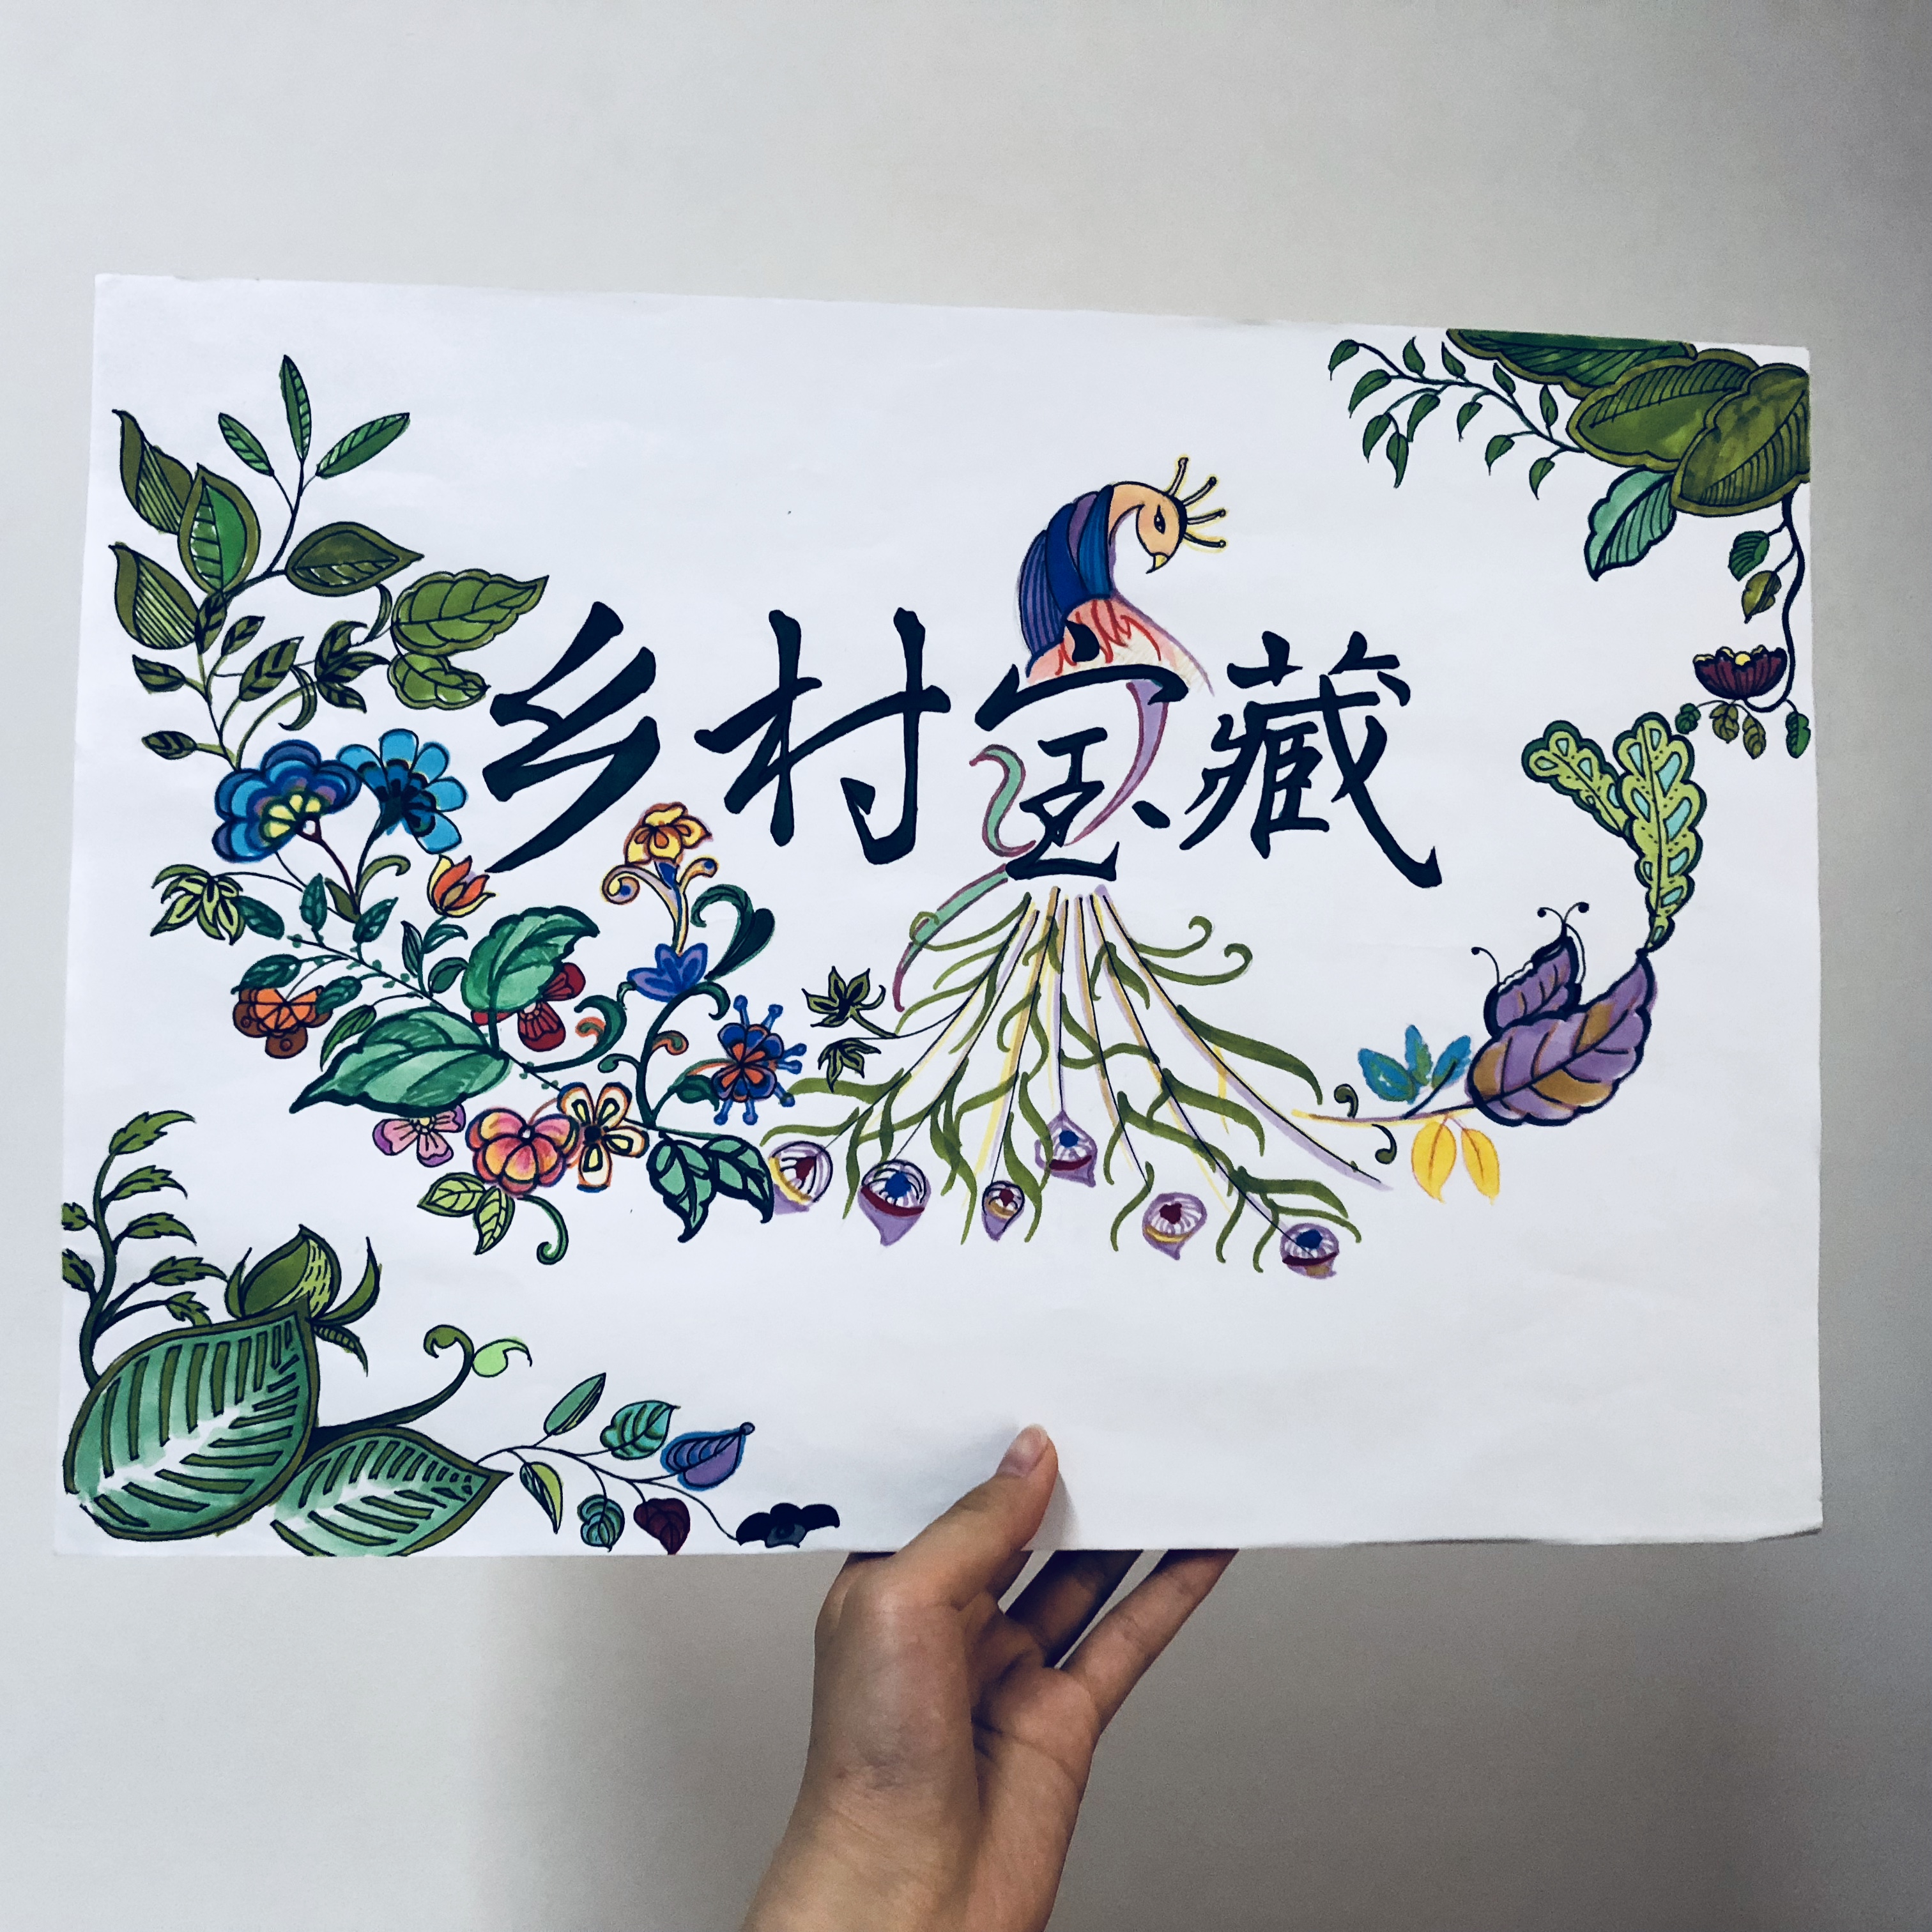 乡村宝藏